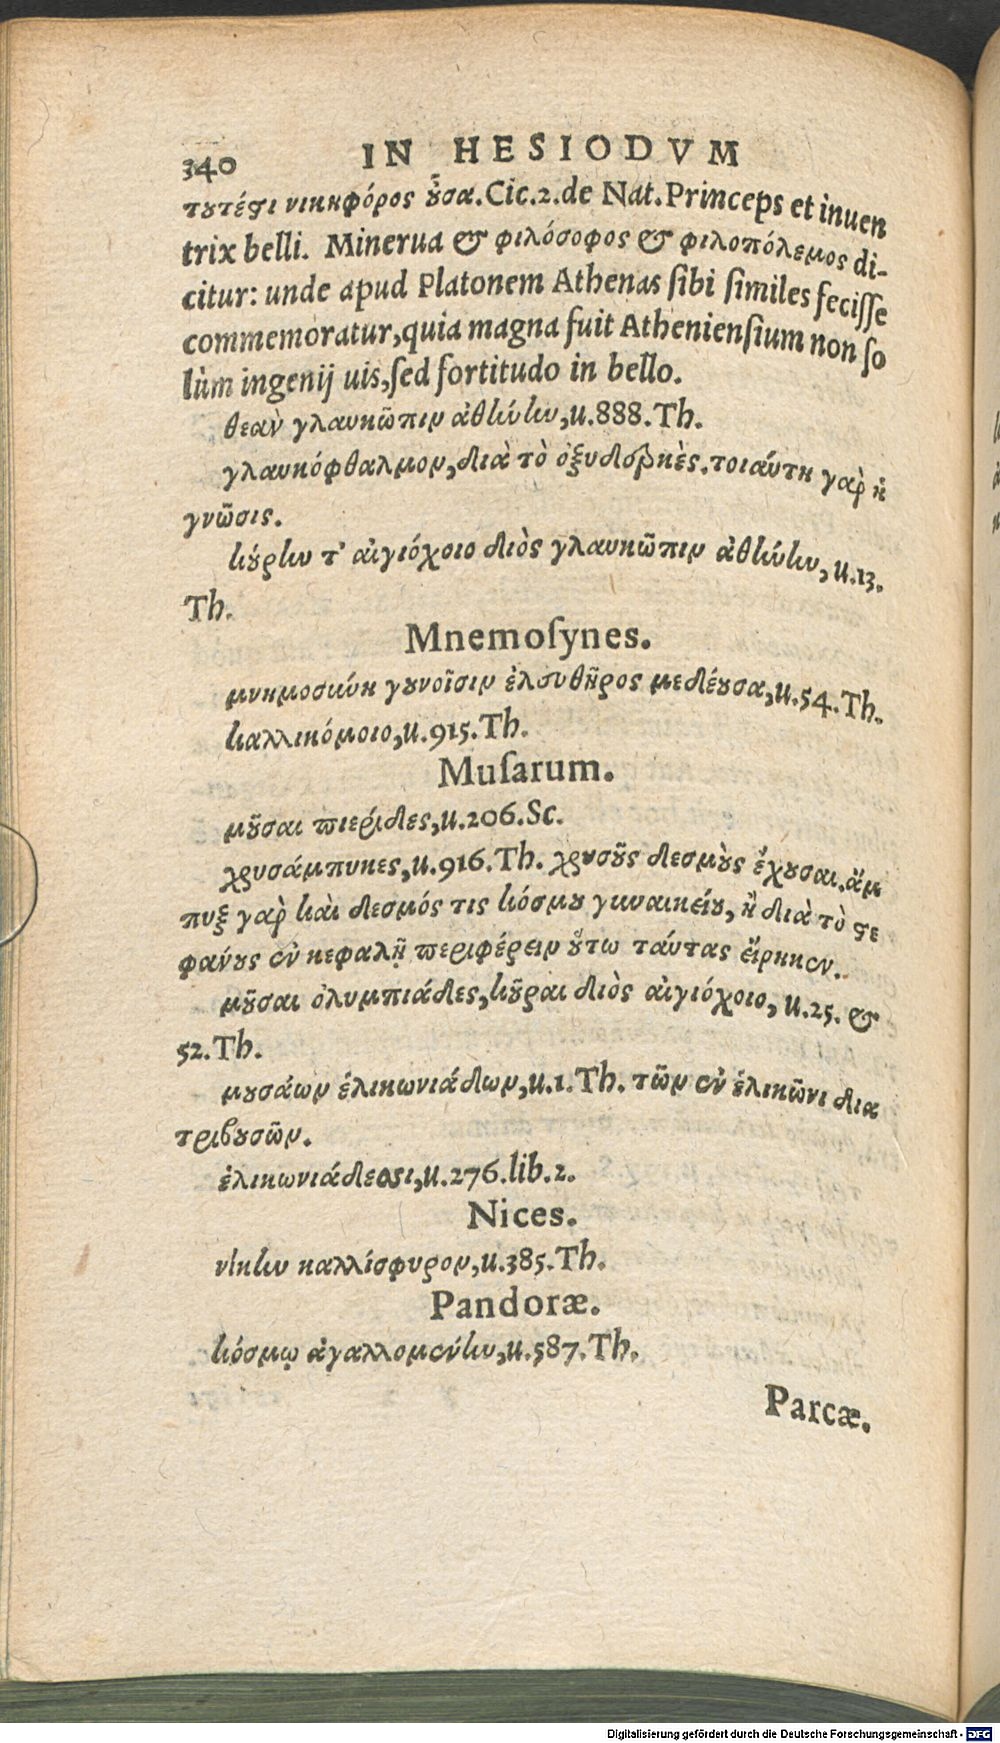 340 IN HESIODVM
τουτέστι νικηφόρος οὖσα. Cic. 2. de Nat. Princeps et inuen
trix belli. Minerua & φιλόσοφος & φιλοπόλεμος di-
citur: unde apud Platonem Athenas sibi similes fecisse
commemoratur, quia magna fuit Atheniensium non so
lùm ingenij uis, sed fortitudo in bello.
θεὰν γλαυκῶπιν ἀθήνην, u. 888. Th.
γλαυκόφθαλμον, διὰ τὸ ὀξυδερκὲς. τοιαύτη γαρ̀ ἡ
γνῶσις.
κούρην τ' αἰγιόχοιο διὸς γλαυκῶπιν ἀθήνην, u. 13.
Th.
Mnemosynes.
μνημοσύνη γουνοῖσιν ἐλευθῆρος μεδέουσα, u. 54. Th.
καλλικόμοιο, u. 915. Th.
Musarum.
μοῦσαι πιερίδες, u. 206. Sc.
χρυσάμπυκες, u. 916. Th. χρυσοῦς δεσμοὺς ἔχουσαι. ἄμ
πυξ γαρ̀ καὶ δεσμός τις κόσμου γυναικείου, ἢ διὰ τὸ στε
φάνους ἐν κεφαλῇ περιφέρειν οὕτω ταύτας εἴρηκεν.
μοῦσαι ὀλυμπιάδες, κοῦραι διὸς αἰγιόχοιο, u. 25. &
52. Th.
μουσάων ἑλικωνιάδων, u. 1. Th. τῶν ἐν ἑλικῶνι δια
τριβουσῶν.
ἑλικωνιάδεσσι, u. 276. lib. 2.
Nices.
νίκην καλλίσφυρον, u. 385. Th.
Pandoræ.
κόσμῳ ἀγαλλομένην, u. 587. Th.
Parcæ.
Digitalisierung gefördert durch die Deutsche Forschungsgemeinschaft - DFG